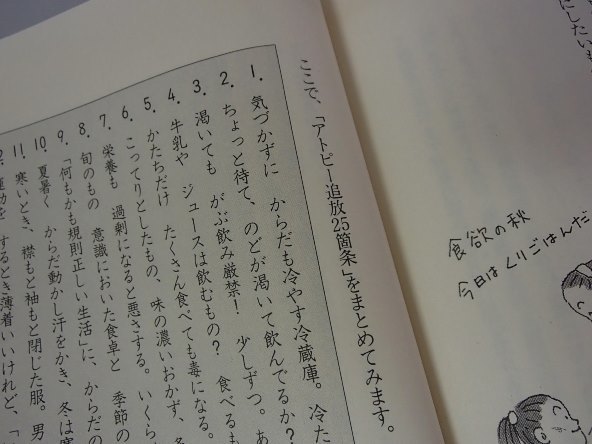 にしたいも
食欲の秋
今日はくりごはんだ
ここで、「アトピー追放25箇条」をまとめてみます。
1. 気づかずに からだも冷やす冷蔵庫。冷た
2. ちょっと待て、のどが渇いて飲んでるか?
3. 渇いても がぶ飲み厳禁! 少しずつ。あ
4. 牛乳や ジュースは飲むもの? 食べるも
5. かたちだけ たくさん食べても毒になる。
6. こってりとしたもの、味の濃いおかず、
7. 栄養も 過剰になると悪さする。いくら
8. 旬のもの 意識においた食卓と 季節の
9. 「何もかも規則正しい生活」に、からだの
10. 夏暑く からだ動かし汗をかき、冬は寒
11. 寒いとき、襟もと袖もと閉じた服。男
運動を するとき薄着いいけれど、「